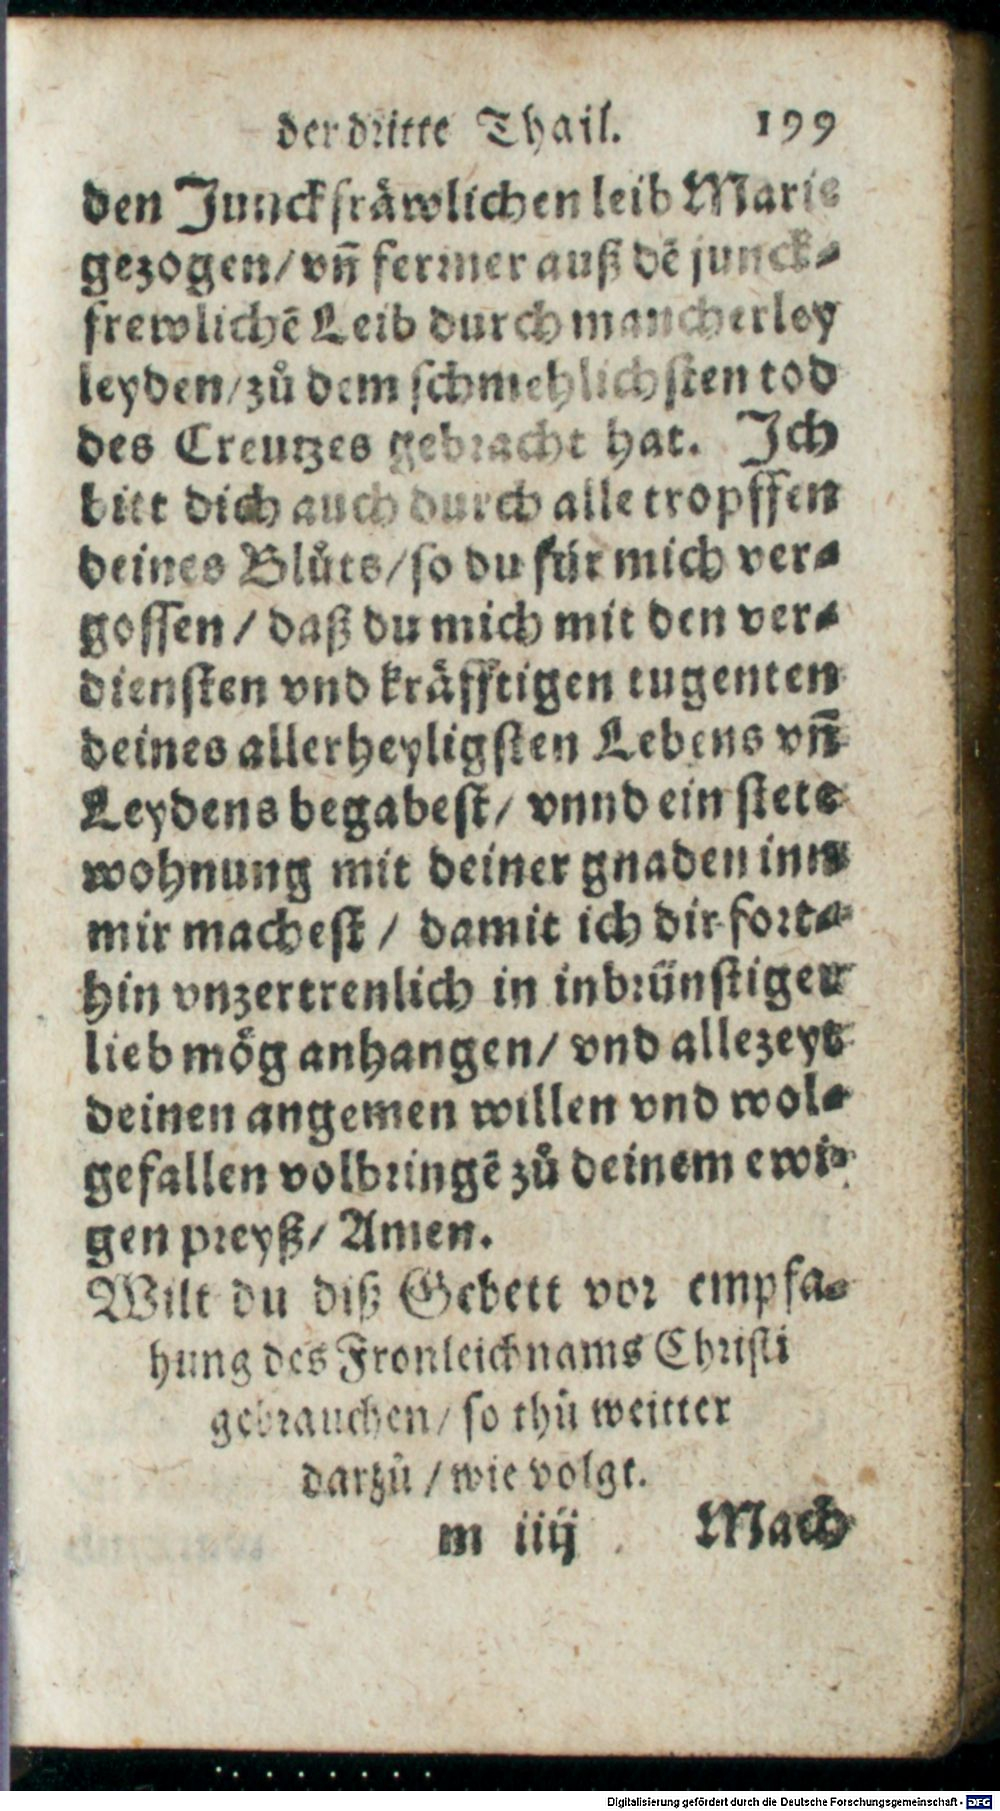 der dritte Thail. 199
den Junckfräwlichen leib Marie
gezogen/ vñ fermer auß dẽ junck-
frewlichẽ Leib durch mancherley
leyden/ zů dem schmehlichsten tod
des Creutzes gebracht hat. Ich
bitt dich auch durch alle tropffen
deines Blůts/ so du für mich ver-
gossen/ daß du mich mit den ver-
diensten vnd kräfftigen tugenten
deines allerheyligsten Lebens vñ
Leydens begabest/ vnnd ein stete
wohnung mit deiner gnaden inn
mir machest/ damit ich dir fort-
hin vnzertrenlich in inbrünstiger
lieb mög anhangen/ vnd allezeyt
deinen angemen willen vnd wol-
gefallen volbringẽ zů deinem ewi-
gen preyß/ Amen.
Wilt du diß Gebett vor empfa-
hung des Fronleichnams Christi
gebrauchen/ so thů weitter
darzů/ wie volgt.
m iiij Mach
Digitalisierung gefördert durch die Deutsche Forschungsgemeinschaft - DFG